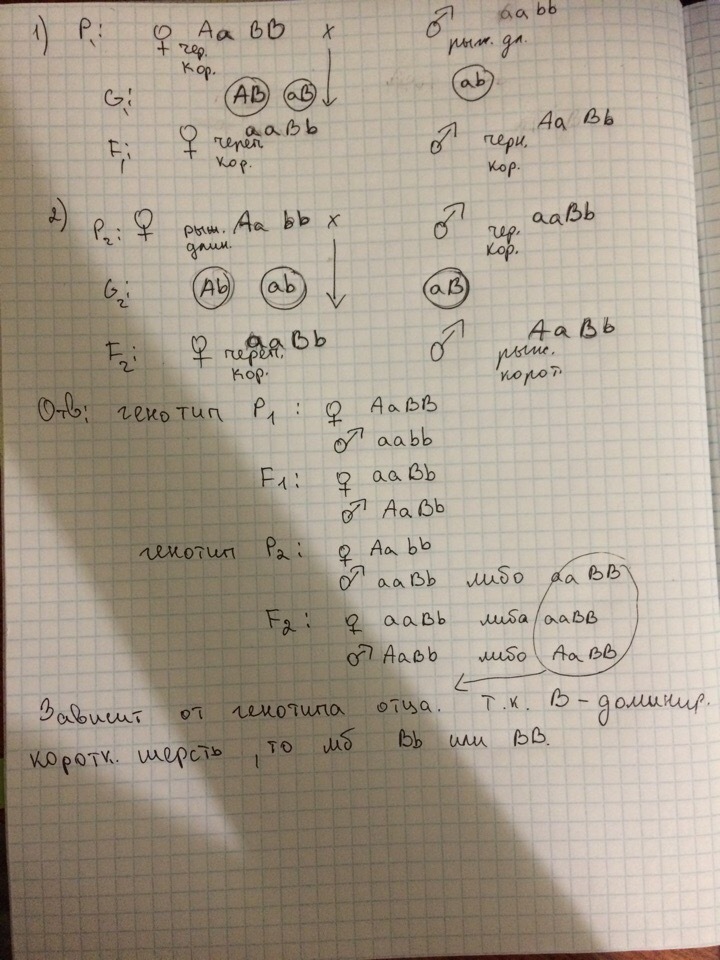 1) P₁: ♀ Aa BB x ♂ aa bb
чер. кор. рыж. дл.
G₁: AB aB ab
F₁: ♀ aaBb ♂ Aa Bb
череп. кор. черн. кор.
2) P₂: ♀ рыж. Aa bb x ♂ чер. aaBb
длин. кор.
G₂: Ab ab aB
F₂: ♀ aaBb ♂ AaBb
череп. кор. рыж. корот.
Отв: генотип P₁: ♀ AaBB
♂ aabb
F₁: ♀ aaBb
♂ AaBb
генотип P₂: ♀ Aabb
♂ aaBb либо aaBB
F₂: ♀ aaBb либо aaBB
♂ AaBb либо AaBB
Зависит от генотипа отца. т.к. B – доминир.
коротк. шерсть, то мб Bb или BB.